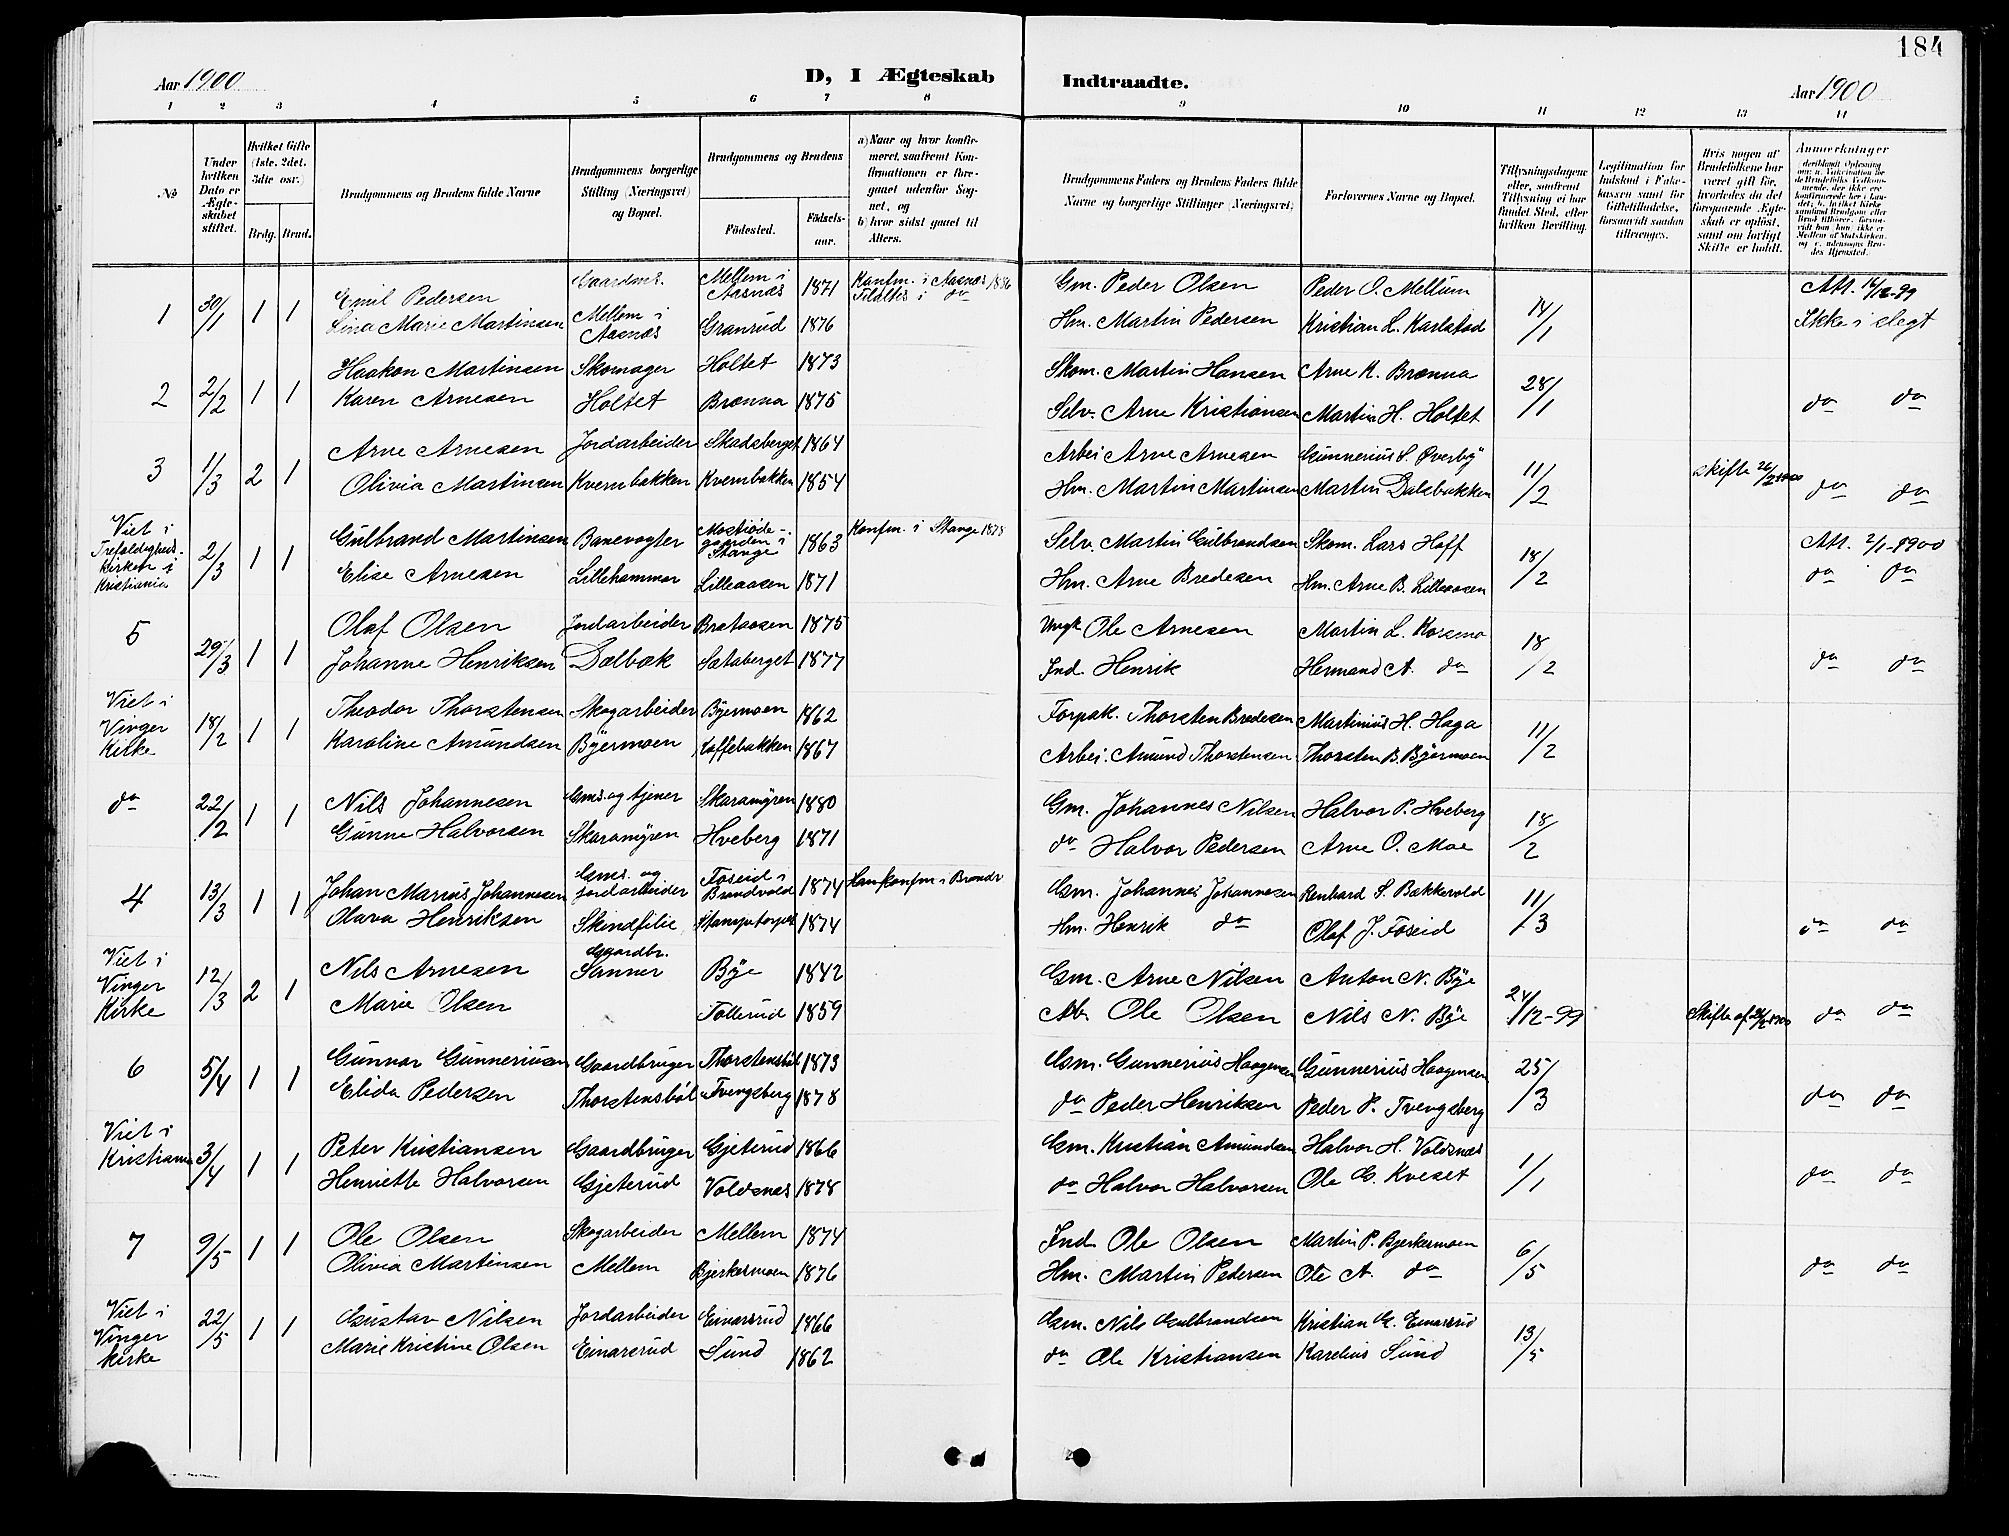 184
Aar 1900
D, I Ægteskab
Indtraadte.
Aar 1900
1 2 3 4 5 6 7 8 9 10 11 12 13 14
№
Under hvilken Dato er Ægteskabet stiftet.
Hvilket Gifte (1ste, 2det, 3die osv.)
Brdg. Brud.
Brudgommens og Brudens fulde Navne
Brudgommens borgerlige Stilling (Næringsvei) og Bopæl.
Brudgommens og Brudens
Fødested.
Fødselsaar.
a) Naar og hvor konfirmeret, saafremt Konfirmationen er foregaaet udenfor Sognet, og
b) hvor sidst gaaet til Alters.
Brudgommens Faders og Brudens Faders fulde Navne og borgerlige Stillinger (Næringsvei)
Forlovernes Navne og Bopæl.
Tillysningsdagene eller, saafremt Tillysning ei har fundet Sted, efter hvilken Bevilling.
Legitimation for Indskud i Enkekassen samt for Giftetilladelse, forsaavidt saadan tiltrænges.
Hvis nogen af Brudefolkene har været gift før, hvorledes da det foregaaende Ægteskab er opløst, samt om lovligt Skifte er holdt.
Anmerkninger
1 30/1 1 1 Emil Pedersen Gaardms. Mellem i Aasnæs 1871 Konfm. i Aasnæs 1886 Gm. Peder Olsen Peder O. Mellum 14/1 Att. 16/12-99
Lina Marie Martinsen Mellem i Aasnæs Granrud 1876 Hm. Martin Pedersen Kristian L. Karlstad Ikke i slegt
2 2/2 1 1 Haakon Martinsen Skomager Holtet 1873 Skom. Martin Hansen Arne K. Brænna 28/1
Karen Arnesen Holtet Brænna 1875 Selv. Arne Kristiansen Martin H. Holtet do do
3 1/3 2 1 Arne Arnesen Jordarbeider Skadsberget 1864 Arbei Arne Arnesen Gunnerius S. Øverby 11/2 skifte 26/2 1900
Olivia Martinsen Kvernbakken Kvernbakken 1854 Hm. Martin Martinsen Martin Dalsbakken do do
Viet i Trefoldigheds-Kirken i Kristiania 2/3 1 1 Gulbrand Martinsen Banevogter gaarden i Stange 1863 Konfm. i Stange 1878 Selv. Martin Gulbrandsen Skom. Lars Hoff 18/2 Att. 2/1-1900
Elise Arnesen Lillehammer Lilleaasen 1871 Hm. Arne Bredesen Hm. Arne B. Lilleaasen do do
5 29/3 1 1 Olaf Olsen Jordarbeider Brataasen 1875 Ole Arnesen Martin L. Korsmo 18/2
Johanne Henriksen Dalbæk Sætaberget 1877 Ind. Henrik Hermand A. do do do
Viet i Vinger Kirke 18/2 1 1 Theodor Thorstensen Skogarbeider Byermoen 1862 Forpak. Thorsten Bredesen Martinius H. Haga 11/2
Karoline Amundsen Byermoen Kaffebakken 1867 Arbei. Amund Thorstensen Thorsten B. Byermoen
do 22/2 1 1 Nils Johannesen Gms. og tjener Skaramyren 1880 Gm. Johannes Nilsen Halvor P. Hveberg 18/2
Gunne Halvorsen Skaramyren Hveberg 1871 do Halvor Pedersen Arne O. Moe
4 13/3 1 1 Johan Marius Johannesen Gms. og Jordarbeider Foseid i Brandvold 1874 Han konfm i Brandv Gm. Johannes Johannesen Renhard S. Bækkevold 11/3
Olava Henriksen Skindfilie Stamptorpet 1874 Hm. Henrik do Olaf J. Foseid do do
Viet i Vinger Kirke 12/3 2 1 Nils Arnesen Gaardbr. Sanner Bye 1842 Gm. Arne Nilsen Anton N. Bye 24/12-99 Skifte af 26/2 1900
Marie Olsen Tollerud 1859 Ab. Ole Olsen Nils N. Bye do do
6 5/4 1 1 Gunnar Gunneriusen Gaardbruger Thorstensbøl 1873 Gm. Gunnerius Haagensen Gunnerius Haagensen 25/3
Elida Pedersen Thorstensbøl Tvengsberg 1878 do Peder Henriksen Peder P. Tvengsberg do do
Viet i Kristiania 3/4 1 1 Peter Kristiansen Gaardbruger Gjeterud 1866 Gm. Kristian Amundsen Halvor H. Voldsnæs 1/1
Henriette Halvorsen Gjeterud Voldsnæs 1878 do Halvor Halvorsen Ole G. Kveset do do
7 9/5 1 1 Ole Olsen Skogarbeider Mellem 1874 Ind. Ole Olsen Martin P. Bjerkermoen 6/5
Olivia Martinsen Mellem Bjerkermoen 1876 Hm. Martin Pedersen Ole A. do do do
Viet i Vinger kirke 22/5 1 1 Gustav Nilsen Jordarbeider Einarsrud 1866 Gm. Nils Gulbrandsen Kristian G. Einarsrud 13/5
Marie Kristine Olsen Einarsrud Sund 1862 do Ole Kristiansen Karelius Sund